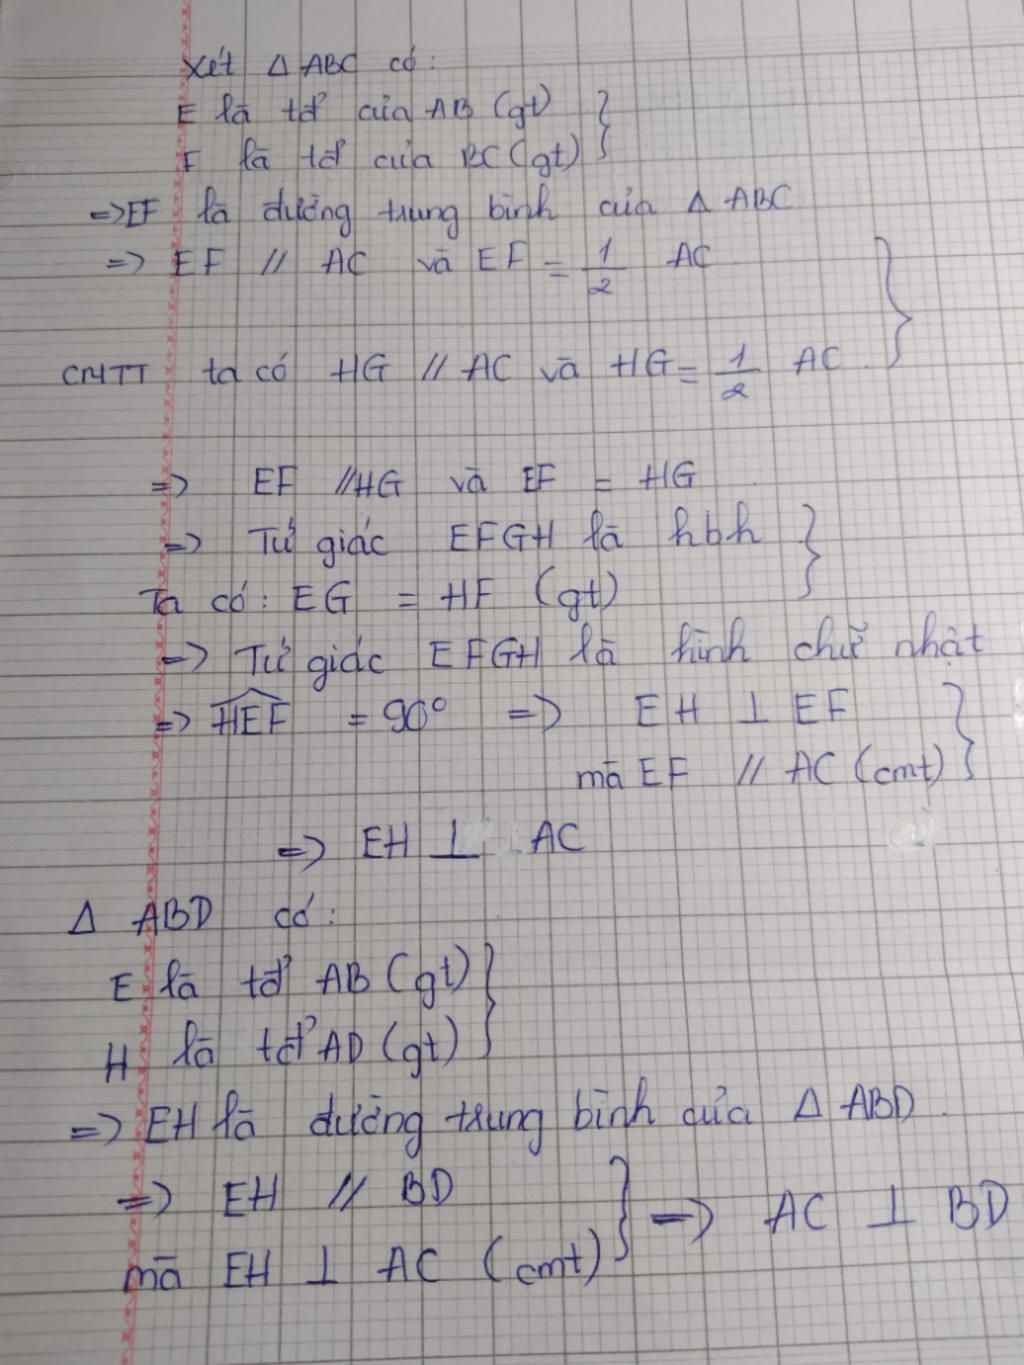 Xét Δ ABC có:
E là tđ của AB (gt)
F là tđ của BC (gt)
=> EF là đường trung bình của Δ ABC
=> EF // AC và EF = 1/2 AC
CMTT ta có HG // AC và HG = 1/2 AC
=> EF // HG và EF = HG
=> Tứ giác EFGH là hbh
Ta có: EG = HF (gt)
=> Tứ giác EFGH là hình chữ nhật
=> HEF = 90° => EH ⊥ EF
mà EF // AC (cmt)
=> EH ⊥ AC
Δ ABD có:
E là tđ AB (gt)
H là tđ AD (gt)
=> EH là đường trung bình của Δ ABD.
=> EH // BD
=> AC ⊥ BD
mà EH ⊥ AC (cmt)